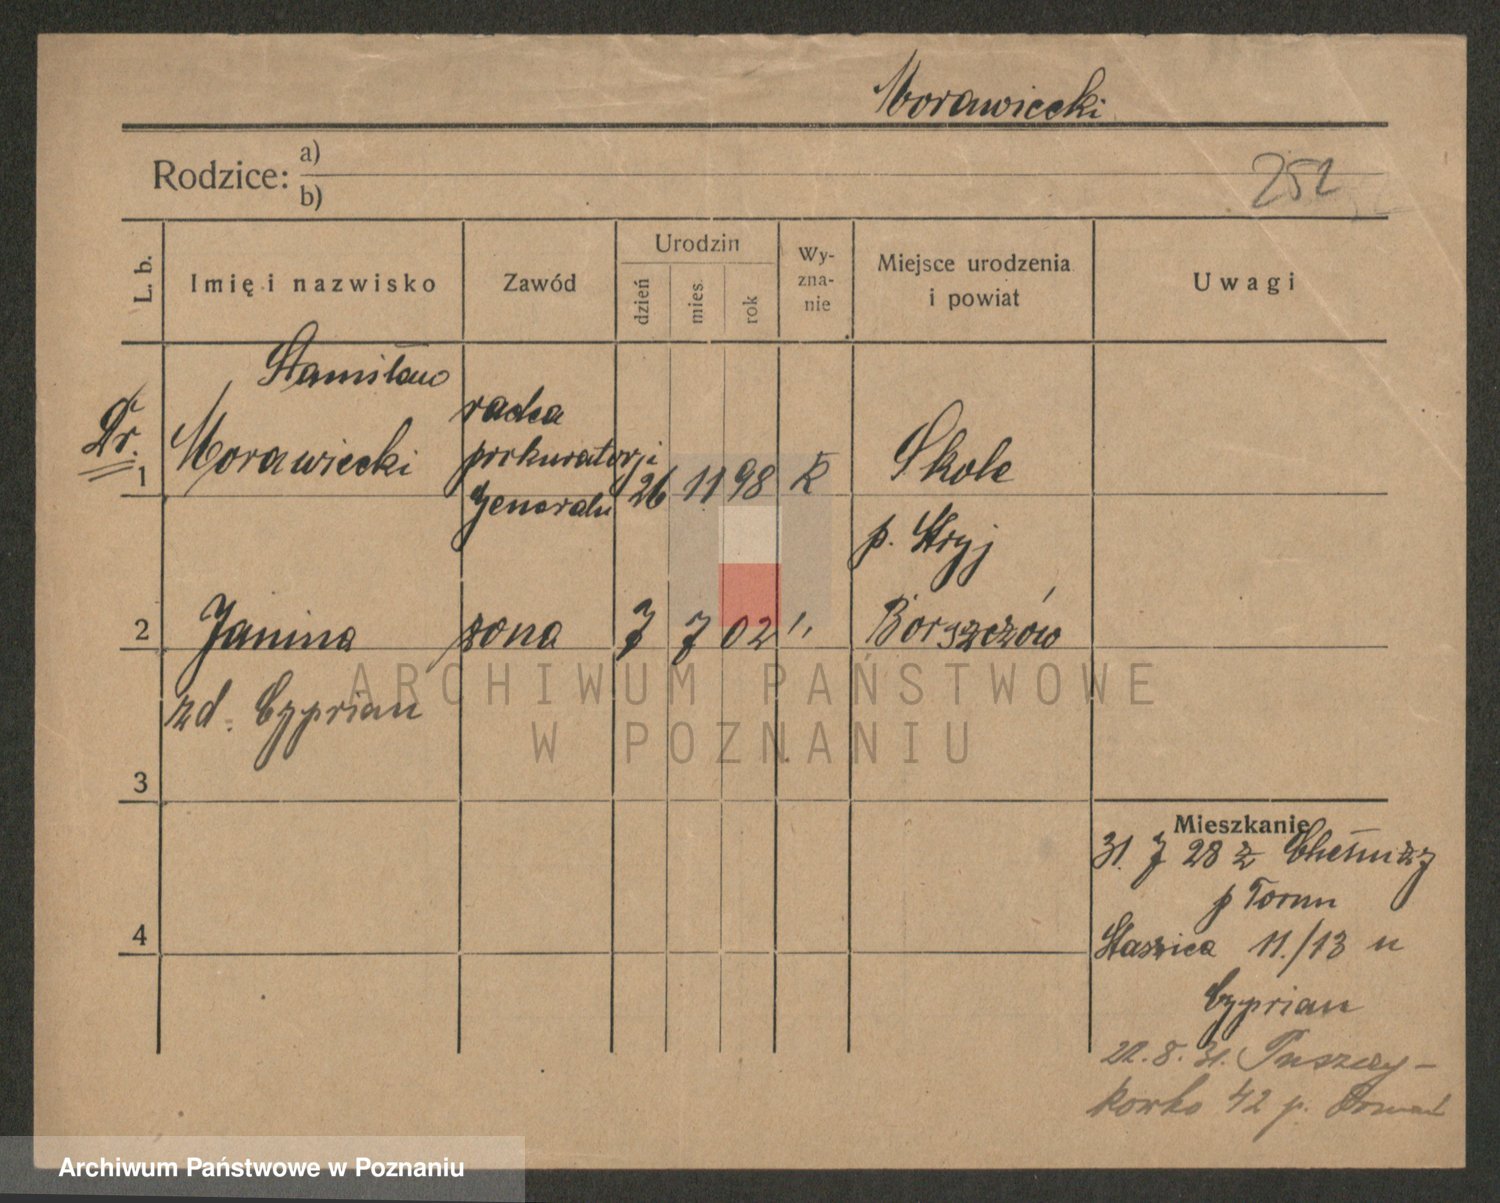 Morawiecki
Rodzice: a)
b)
252
L. b.
Imię i nazwisko
Zawód
Urodzin
dzień
mies.
rok
Wy-
zna-
nie
Miejsce urodzenia
i powiat
Uwagi
Dr.
1
Stanisław
Morawiecki
radca
prokuratorji
Generaln
26 11 98 k
Skole
p. Stryj
2
Janina
żona
7 7 02 "
Borszczów
zd. Cyprian
3
4
Mieszkanie
31. 7 28 z Chełmży
p Torun
Staszica 11./13 u
Cyprian
22.8.31. Puszczy-
kowko 42 p. Poznań
ARCHIWUM PAŃSTWOWE
W POZNANIU
Archiwum Państwowe w Poznaniu